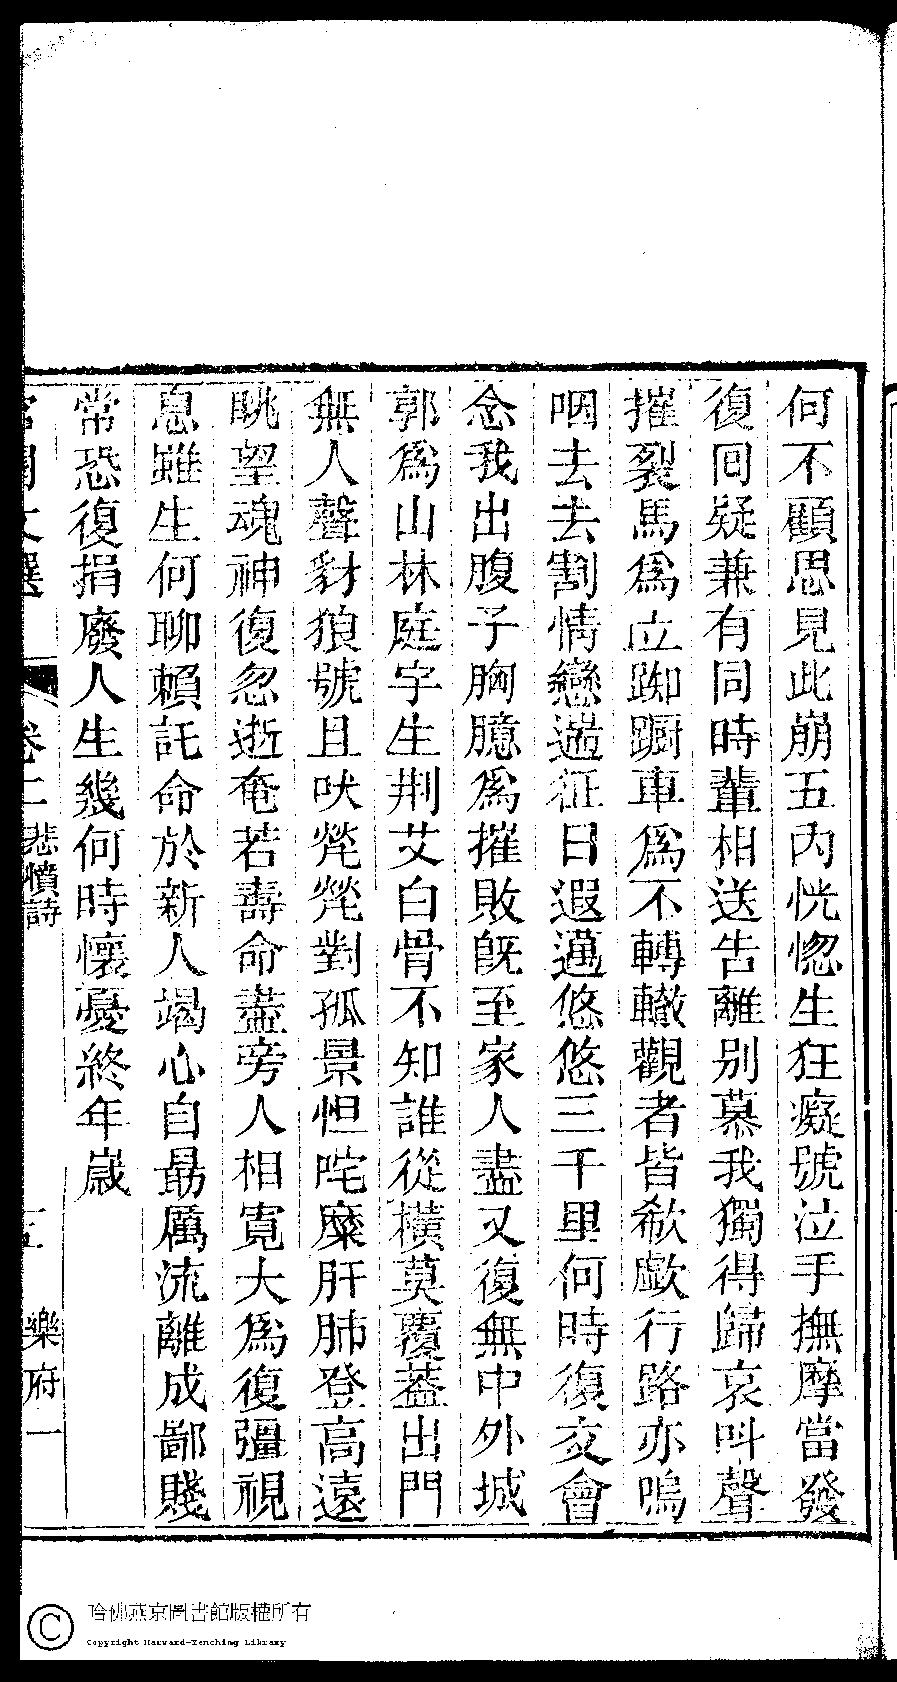 何不顧思見此崩五内恍惚生狂癡號泣手撫摩當發
復囘疑兼有同時輩相送告離別慕我獨得歸哀叫聲
摧裂馬爲立踟躕車爲不轉轍觀者皆欷歔行路亦嗚
咽去去割情戀遄征日遐邁悠悠三千里何時復交會
念我出腹子胸臆爲摧敗旣至家人盡又復無中外城
郭爲山林庭宇生荆艾白骨不知誰從橫莫覆蓋出門
無人聲豺狼號且吠煢煢對孤景怛咤糜肝肺登高遠
眺望魂神復忽逝奄若壽命盡旁人相寛大爲復彊視
息雖生何聊賴託命於新人竭心自勗厲流離成鄙賤
常恐復捐廢人生幾何時懷憂終年歲
文選 卷二 悲憤詩 五 樂府一
哈佛燕京圖書館版權所有
Copyright Harvard-Yenching Library